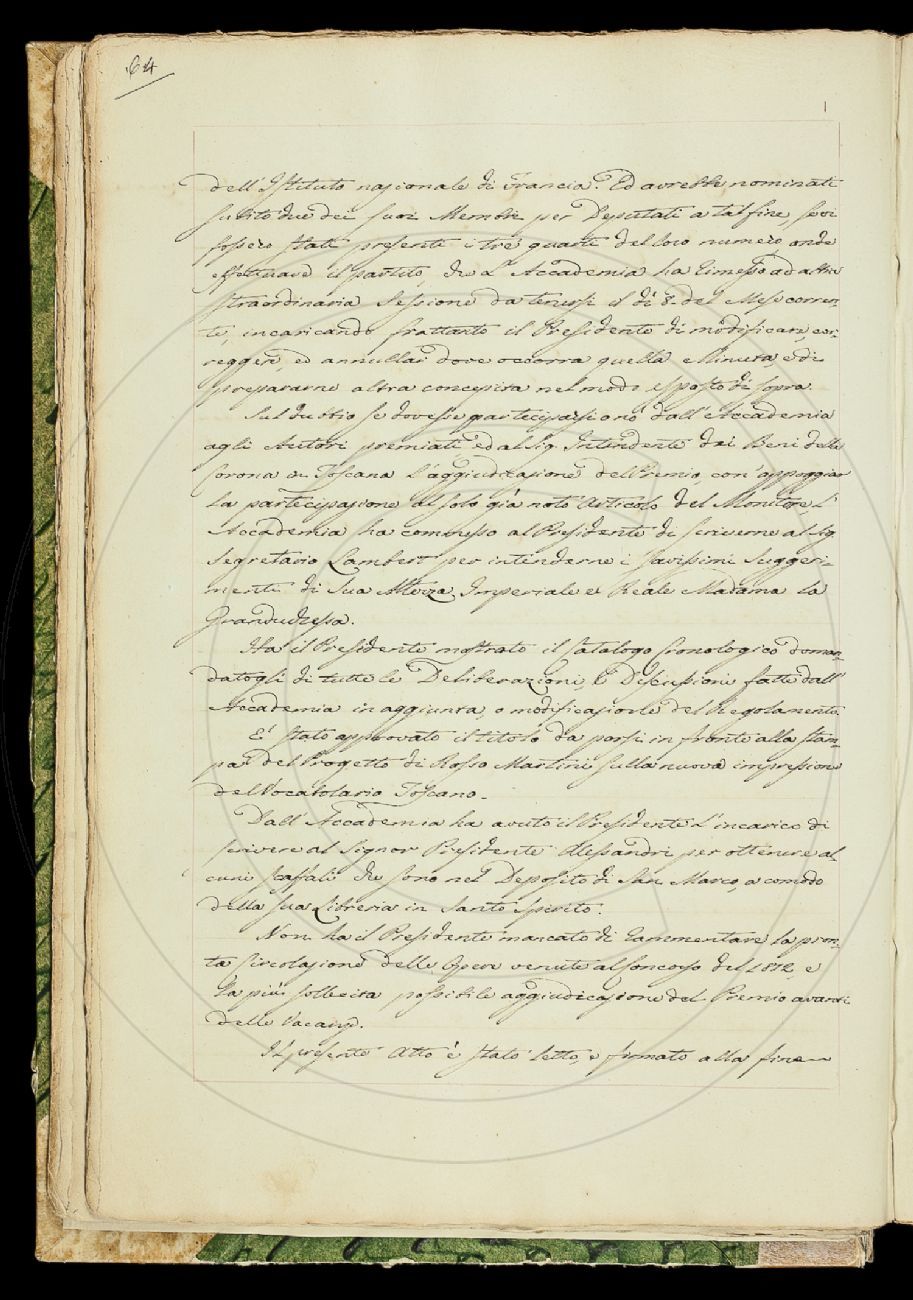 64
dell'Istituto nazionale di Francia. Ed avrebbe nominati
subito due dei suoi Membri per Deputati a tal fine, se vi
fossero stati presenti i tre quarti del loro numero, onde
effettuare il partito, che L'Accademia ha rimesso ad altra
straordinaria Sessione da tenersi il dì 8. del Mese corren-
te, incaricando frattanto il Presidente di modificare, cor-
reggere, ed annullar dove occorra quella Minuta, e di
prepararne altra concepita nel modo esposto di sopra.
Sul dubbio se dovesse parteciparsi o nò dall'Accademia
agli Autori premiati, ed al Sig. Intendente dei Beni della
Corona in Toscana l'aggiudicazione del Premio, con appoggiar
la partecipazione al solo già noto Articolo del Monitore, L'
Accademia ha commesso al Presidente di scriverne al Sig.
Segretario Lambert per intenderne i savissimi suggeri-
menti di Sua Altezza Imperiale e Reale Madama la
Granduchessa.
Ha il Presidente mostrato il Catalogo Cronologico doman-
datogli di tutte le Deliberazioni, e Discussioni fatte dall'
Accademia in aggiunta, o modificazione del Regolamento.
E' stato approvato il titolo da porsi in fronte alla stam-
pa del Progetto di Rosso Martini sulla nuova impressione
del Vocabolario Toscano.
Dall'Accademia ha avuto il Presidente L'incarico di
scrivere al Signor Presidente Alessandri per ottenere al-
cuni scaffali che sono nel Deposito di San Marco, a comodo
della sua Libreria in Santo Spirito.
Non ha il Presidente mancato di rammentare la pron-
ta Circolazione delle Opere venute al Concorso del 1812, e
la più sollecita possibile aggiudicazione del Premio avanti
delle Vacanze.
Il presente Atto è stato letto, e firmato alla fine